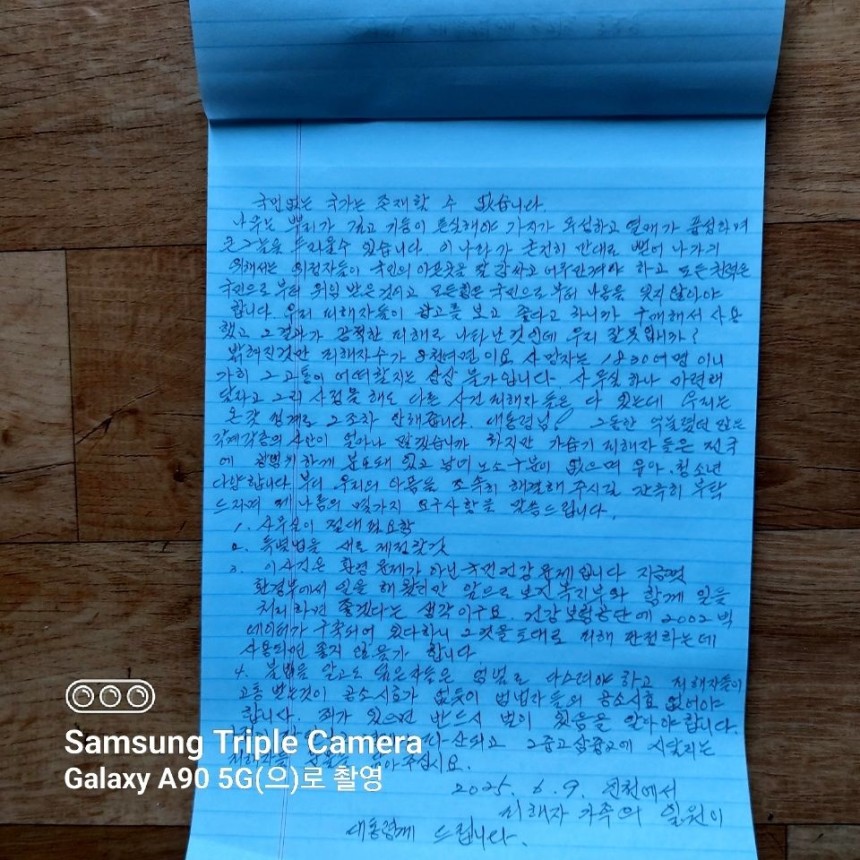 국민없는 국가는 존재할 수 없습니다.
나무는 뿌리가 깊고 기둥이 튼실해야 가지가 무성하고 열매가 풍성하며
큰그늘을 드리울수 있습니다 이 나라가 온전히 만대로 뻗어 나가기
위해서는 위정자들이 국민의 아픈곳을 잘 감싸고 어루만져야 하고 모든 권력은
국민으로 부터 위임 받은것이고 모든힘은 국민으로 부터 나옴을 잊지 않아야
합니다. 우리 피해자들이 광고를 보고 좋다고 하니까 구매해서 사용
했고 그결과가 끔찍한 피해로 나타난것인데 우리 잘못입니까?
밝혀진것만 피해자수가 8천여명이요 사망자는 1830여명 이니
가히 그 고통이 어떠할지는 상상 불가입니다. 사무실 하나 마련해
달라고 그리 사정을 해도 다른 사건 피해자들은 다 있는데 우리는
온갖 핑계로 그조차 안해줍니다. 대통령님! 그동안 억눌렸던 많은
각계각층의 사안이 얼마나 많겠습니까 하지만 가습기 피해자들은 전국
에 광범위하게 분포돼 있고 남녀노소 구분이 없으며 유아, 청소년
다양합니다. 부디 우리의 아픔을 조속히 해결해 주시길 간곡히 부탁
드리며 제 나름의 몇가지 요구사항을 말씀드립니다.
1. 사무실이 절대 필요함
2. 특별법을 새로 제정할것
3. 이사건은 환경문제가 아닌 국민건강 문제입니다 지금껏
환경부에서 일을 해 왔지만 앞으로 보건복지부와 함께 일을
처리하면 좋겠다는 생각이구요. 건강보험공단에 2002 빅
데이터가 구축되어 있다하니 그것을 토대로 피해 판정하는데
사용되면 좋지 않을까 합니다
4. 불법을 알고도 덮은자들은 엄벌로 다스려야 하고 피해자들이
고통 받는것이 공소시효가 없듯이 범법자들의 공소시효 없어야
합니다. 죄가 있으면 반드시 벌이 있음을 알아야 합니다.
이중고 삼중고에 시달리는
피해자들 주십시요.
2025. 6. 9. 인천에서
피해자 가족의 일원이
대통령께 드립니다.
Samsung Triple Camera
Galaxy A90 5G(으)로 촬영